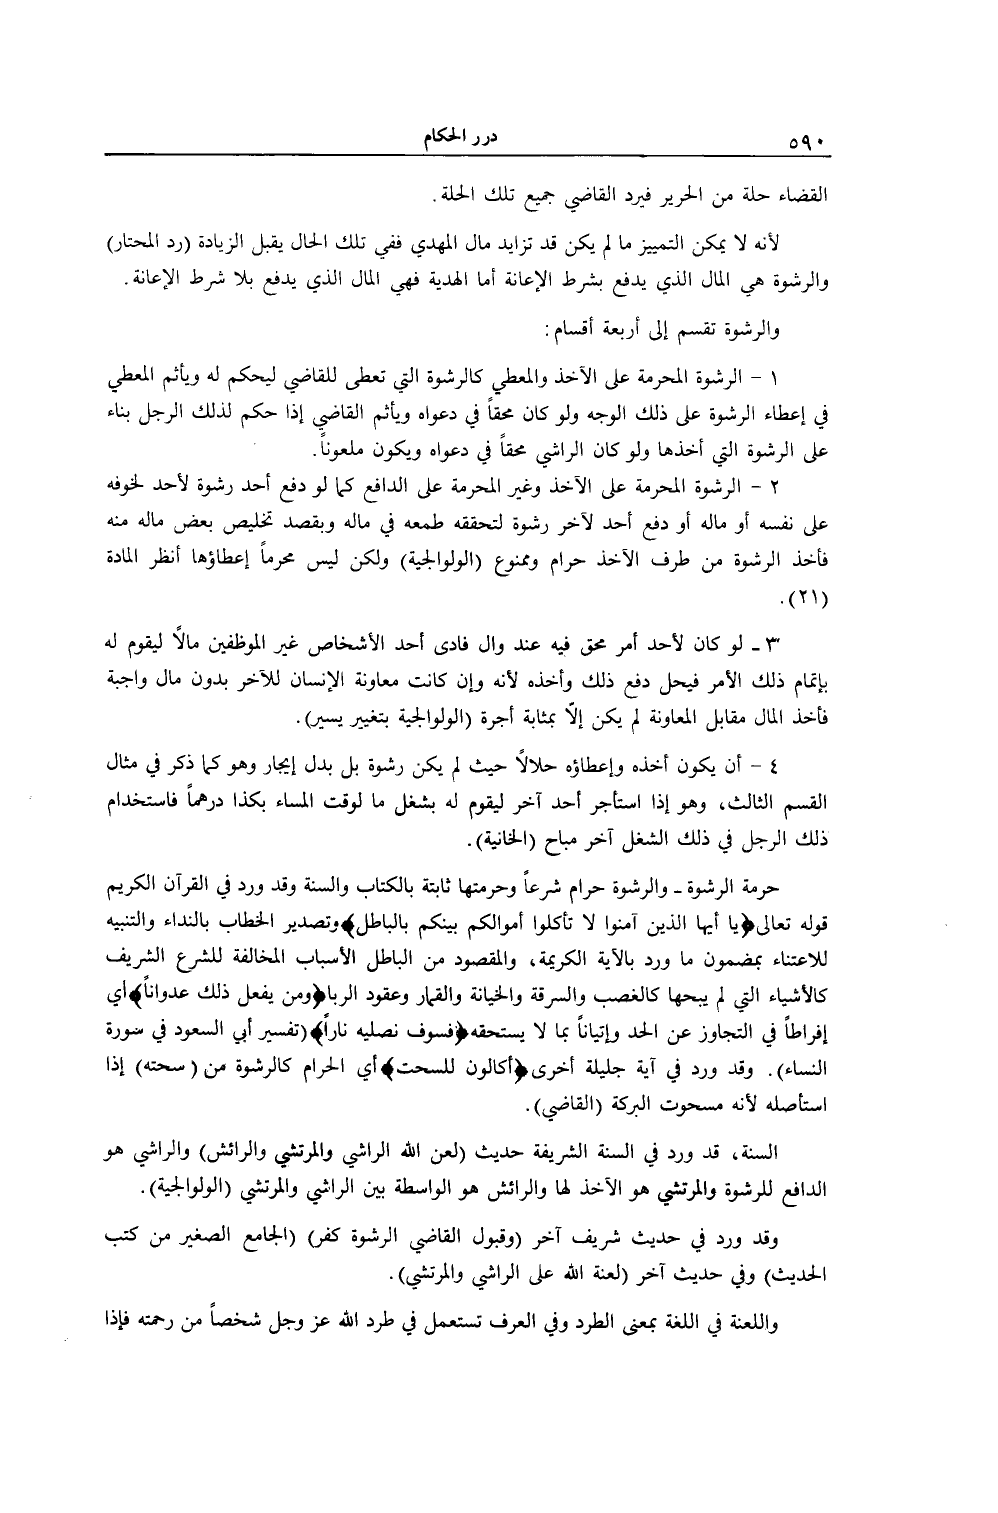 ٥٩٠
درر الحكام
القضاء حلة من الحرير فيرد القاضي جميع تلك الحلة.
لأنه لا يمكن التمييز ما لم يكن قد تزايد مال المهدي ففي تلك الحال يقبل الزيادة (رد المحتار)
والرشوة هي المال الذي يدفع بشرط الإعانة أما الهدية فهي المال الذي يدفع بلا شرط الإعانة.
والرشوة تقسم إلى أربعة أقسام:
١ - الرشوة المحرمة على الآخذ والمعطي كالرشوة التي تعطى للقاضي ليحكم له ويأثم المعطي
في إعطاء الرشوة على ذلك الوجه ولو كان محقاً في دعواه ويأثم القاضي إذا حكم لذلك الرجل بناء
على الرشوة التي أخذها ولو كان الراشي محقاً في دعواه ويكون ملعوناً.
٢ - الرشوة المحرمة على الآخذ وغير المحرمة على الدافع كما لو دفع أحد رشوة لأحد لخوفه
على نفسه أو ماله أو دفع أحد لآخر رشوة لتحققه طمعه في ماله وبقصد تخليص بعض ماله منه
فأخذ الرشوة من طرف الآخذ حرام وممنوع (الولوالجية) ولكن ليس محرماً إعطاؤها أنظر المادة
(٢١).
٣ ـ لو كان لأحد أمر محق فيه عند وال فادى أحد الأشخاص غير الموظفين مالًا ليقوم له
بإتمام ذلك الأمر فيحل دفع ذلك وأخذه لأنه وإن كانت معاونة الإنسان للآخر بدون مال واجبة
فأخذ المال مقابل المعاونة لم يكن إلّا بمثابة أجرة (الولوالجية بتغيير يسير).
٤ - أن يكون أخذه وإعطاؤه حلالاً حيث لم يكن رشوة بل بدل إيجار وهو كما ذكر في مثال
القسم الثالث، وهو إذا استأجر أحد آخر ليقوم له بشغل ما لوقت المساء بكذا درهماً فاستخدام
ذلك الرجل في ذلك الشغل آخر مباح (الخانية).
حرمة الرشوة ـ والرشوة حرام شرعاً وحرمتها ثابتة بالكتاب والسنة وقد ورد في القرآن الكريم
قوله تعالى ﴿يا أيها الذين آمنوا لا تأكلوا أموالكم بينكم بالباطل﴾ وتصدير الخطاب بالنداء والتنبيه
للاعتناء بمضمون ما ورد بالآية الكريمة، والمقصود من الباطل الأسباب المخالفة للشرع الشريف
كالأشياء التي لم يبحها كالغصب والسرقة والخيانة والقمار وعقود الربا ﴿ومن يفعل ذلك عدواناً﴾ أي
إفراطاً في التجاوز عن الحد وإتياناً بما لا يستحقه ﴿فسوف نصليه ناراً﴾ (تفسير أبي السعود في سورة
النساء). وقد ورد في آية جليلة أخرى ﴿أكالون للسحت﴾ أي الحرام كالرشوة من (سحته) إذا
استأصله لأنه مسحوت البركة (القاضي).
السنة، قد ورد في السنة الشريفة حديث (لعن الله الراشي والمرتشي والرائش) والراشي هو
الدافع للرشوة والمرتشي هو الآخذ لها والرائش هو الواسطة بين الراشي والمرتشي (الولوالجية).
وقد ورد في حديث شريف آخر (وقبول القاضي الرشوة كفر) (الجامع الصغير من كتب
الحديث) وفي حديث آخر (لعنة الله على الراشي والمرتشي).
واللعنة في اللغة بمعنى الطرد وفي العرف تستعمل في طرد الله عز وجل شخصاً من رحمته فإذا